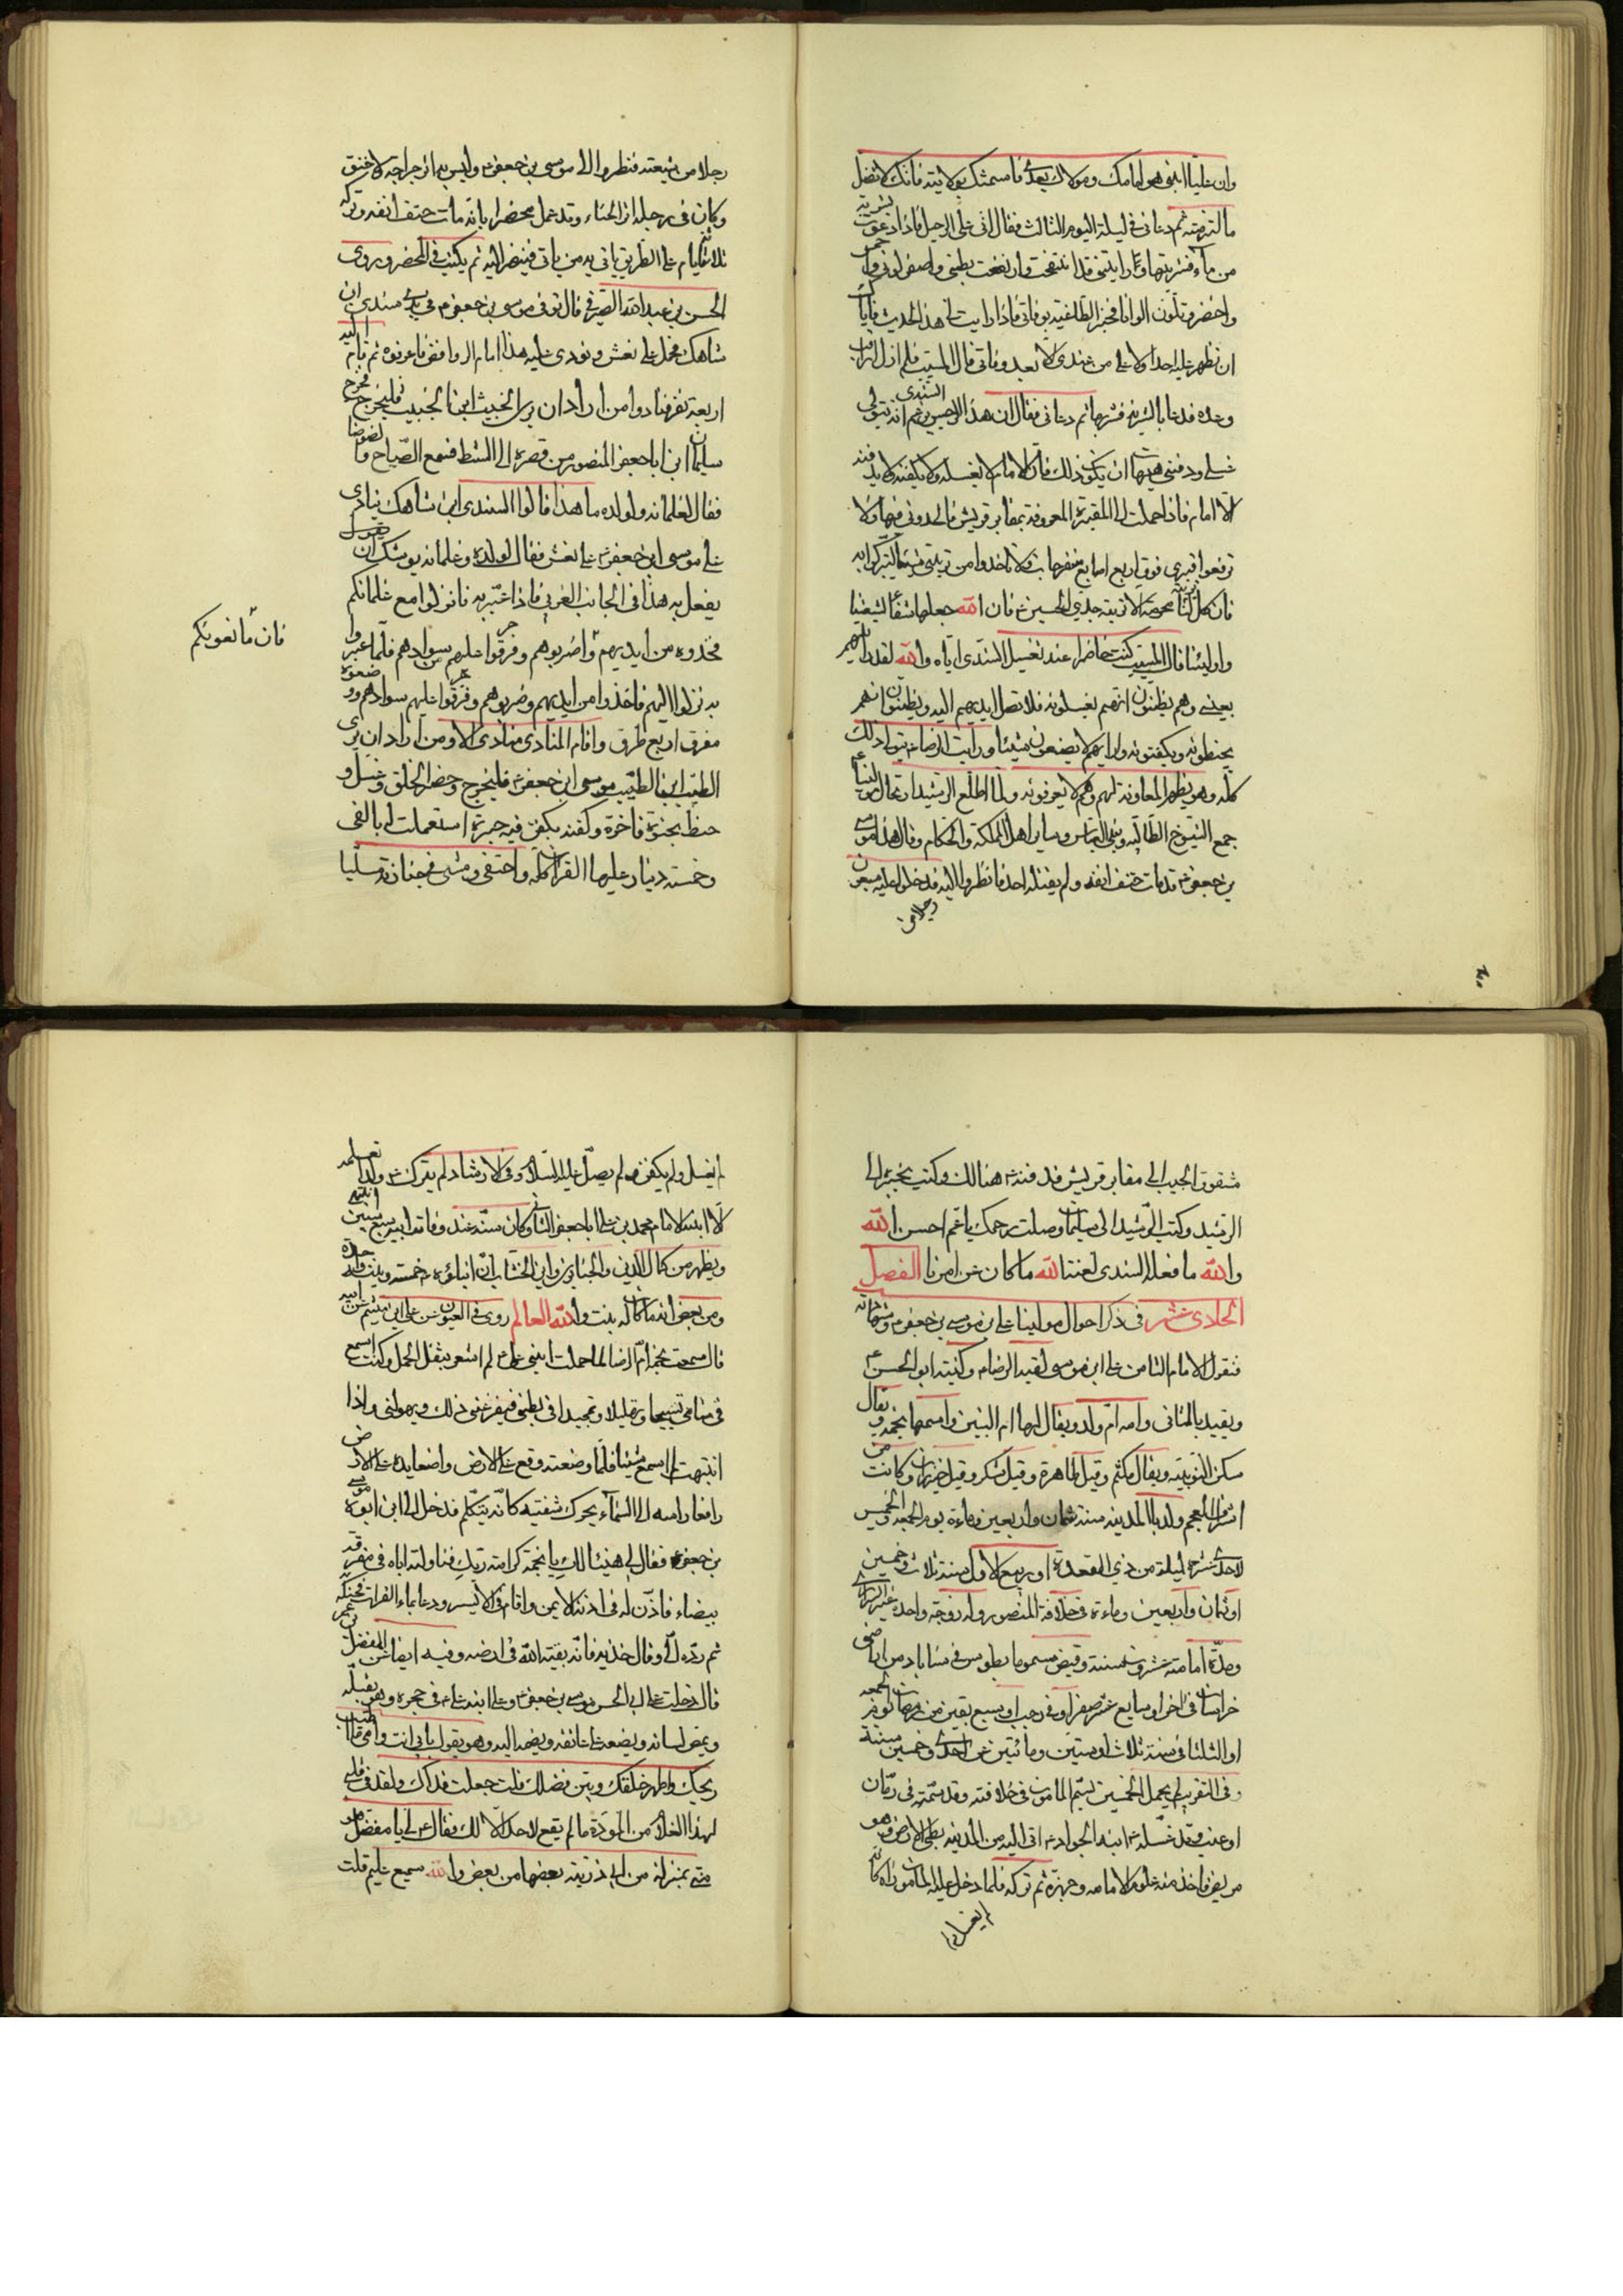 وان عليّا ابني هو امامك ومولاك بعدي فاستمسك بولايته فانك لا تضل
ما لتزمته ثم دعاني في ليلة اليوم الثالث فقال اني على الرحيل فاذا دعوت بشربة
من ماء فشربتها ورايتني قد انتفخت وارتفعت بطني واصفر لوني واحمر
واخضر وتلون الوانا فخبر الطاغية بوفاتي فاذا رايت بي هذا الحدث فاياك
ان تظهر عليه احدا ولا على من عندي الا بعد وفاتي قال المسيب فلم ازل اراقب
وعده فدعا بالشربة فشربها ثم دعاني فقال ان هذا الرجس السندي يزعم انه يتولى
غسلي ودفني هيهات ان يكون ذلك فان الامام لا يغسله ولا يكفنه ولا يدفنه
الا امام فاذا حملت الى المقبرة المعروفة بمقابر قريش فالحدوني فيها ولا
ترفعوا قبري فوق اربع اصابع منفرجات ولا تاخذوا من تربتي شيئا لتتبركوا به
فان كل تربة لنا محرمة الا تربة جدي الحسين ع فان الله جعلها شفاء لشيعتنا
واوليائنا قال المسيب كنت حاضرا عند تغسيل السندي اياه والله لقد رايتهم
بعيني وهم يظنون انهم يغسلونه فلا تصل ايديهم اليه ويظنون انهم
يحنطونه ويكفنونه واراهم لا يصنعون شيئا ورايت الرضا ع يتولى ذلك
كله وهو يظهر المعاونة لهم وهم لا يعرفونه ولما اطلع الرشيد
جمع الشيوخ الطالبية وبني العباس وساير اهل المملكة والحكام وقال هذا موسى
بن جعفر ع قد مات حتف انفه ولم يقتله احد فانظروا اليه فدخل عليه سبعون
رجلا من
رجلا من شيعته فنظروا الى موسى بن جعفر ع وليس به اثر جراحة ولا خنق
وكان في رجله اثر الحناء وقد عمل محضرا بانه مات حتف انفه وتركه
ثلاثة ايام على الطريق ياتي به من ياتي فينظر اليه ثم يكتب في المحضر وروى
الحسن بن عبد الله الصيرفي قال توفي موسى بن جعفر ع في يدي سندي ابن
شاهك فحمل على نعش ونودي عليه هذا امام الرافضة فاعرفوه ثم اقام اليه
اربعة نفر فنادوا من اراد ان يرى الخبيث ابن الخبيث فليخرج فخرج
سليمان ابن ابا جعفر المنصور من قصره الى الشط فسمع الصياح والضوضا
فقال لغلمانه ولولده ما هذا قالوا السندي ابن شاهك ينادي
على موسى ابن جعفر ع على نعش فقال لولده وغلمانه يوشك ان
يفعل به هذا في الجانب الغربي فاذا عبّر به فانزلوا مع غلمانكم
فخذوه من ايديهم
فان مانعوكم
واضربوهم وخرقوا عليهم سوادهم فلما عبروا
به نزلوا اليهم فاخذوا من ايديهم وضربوهم وخرقوا عليهم سوادهم ووضعوه
مفرق اربع طرق واقام المنادي ينادي الا ومن اراد ان يرى
الطيب ابن الطيب موسى ابن جعفر ع فليخرج وحضر الخلق وغسل و
حنط بحنوط فاخرة وكفنه بكفن فيه حبرة استعملت له بالفي
وخمسه دينار عليها القران كله واحتفى ومشى في جنازته متسلبا
مشقوق الجيب الى مقابر قريش فدفنه ع هنالك وكتب بخبره الى
الرشيد وكتب الرشيد الى سليمان وصلت رحمك يا عم احسن الله
والله ما فعله السندي لعنه الله ما كان عن امرنا الفصل
الحادي عشر في ذكر احوال مولينا علي بن موسى بن جعفر ع
فنقول الامام الثامن علي ابن موسى لقبه الرضا ع وكنيته ابو الحسن ع
ويقيد بالثاني وامه ام ولد ويقال لها ام البنين واسمها نجمه ويقال
سكن النوبية ويقال تكتم وقيل طاهرة وقيل شكر وقيل خيزران وكانت من
اشراف العجم ولد بالمدينة سنة ثمان واربعين وماءة يوم الجمعة او الخميس
لاحدى عشرة ليلة من ذي القعدة او ربيع الاول سنة ثلاث وخمسين
او ثمان واربعين وماءة في خلافة المنصور وله زوجة واحدة
ومدة امامته عشرون سنة وقبض مسموما بطوس في سناباد من اراضي
خراسان في اخر او سابع عشر صفر او في رجب او سبع بقين من رمضان يوم الجمعة
او الثلثا في سنة ثلاث او ستين ومائتين عن احدى وخمسين سنة
وفي التقريب لم يكمل الخمسين بسم المامون في خلافته وقد سمه في رمان
او عنب وقد غسله ع ابنه الجواد ع اتى اليه من المدينة بطي الارض وهو
مريض فاخذ منه علوم الامامه وجهزه ثم تركه فلما دخل عليه المامون راه كانه
لم يغسل
لم يغسل ولم يكفن ولم يصل عليه السلام وفي الارشاد لم يترك ع ولدا نعلمه
الا ابنه الامام محمد بن علي ابا جعفر الثاني وكان سنه عند وفاة ابيه سبع سنين
ويظهر من كمال الدين والجنابذي وابن الخشاب ان ابناؤه خمسة وبنت واحدة
ومن بعض انه ما كان له بنت والله العالم روى في العيون عن علي ابن ميثم عن ابيه
قال سمعت نجمة ام الرضا لما حملت ابني علي ع لم اشعر بثقل الحمل وكنت اسمع
في منامي تسبيحا وتهليلا وتمجيدا في بطني فيفزعني ذلك ويهولني واذا
انتبهت لم اسمع شيئا فلما وضعته وقع على الارض واضعا يده على الارض
رافعا راسه الى السماء يحرك شفتيه كانه يتكلم فدخل الى ابن ابوه موسى
بن جعفر ع فقال لي هنيئا لك يا نجمة كرامة ربك فناولته اياه في خرقة
بيضاء فاذن له في اذنه الايمن واقام في الايسر ودعا بماء الفرات فحنكه
ثم رده لي وقال خذيه فانه بقية الله في ارضه وفيه ايضا عن المفضل بن عمر
قال دخلت على ابي الحسن موسى بن جعفر ع وعلى ابنه علي ع في حجره وهو يقبله
ويمص لسانه ويضعه على عاتقه ويضمه اليه وهو يقول بابي انت وامي ما اطيب
ريحك واطهر خلقك وبين فضلك قلت جعلت فداك ولقد في قلبي
لهذا الغلام من المودة ما لم يقع لاحد الا لك فقال ع لي يا مفضل هو
مني بمنزلة من ابي ذرية بعضها من بعض والله سميع عليم قلت